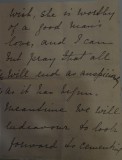 wish. She is worthy
of a good man's
love, and I can
but pray that all
will end as auspiciously
as it has begun.
Meantime we will
endeavour to look
forward to